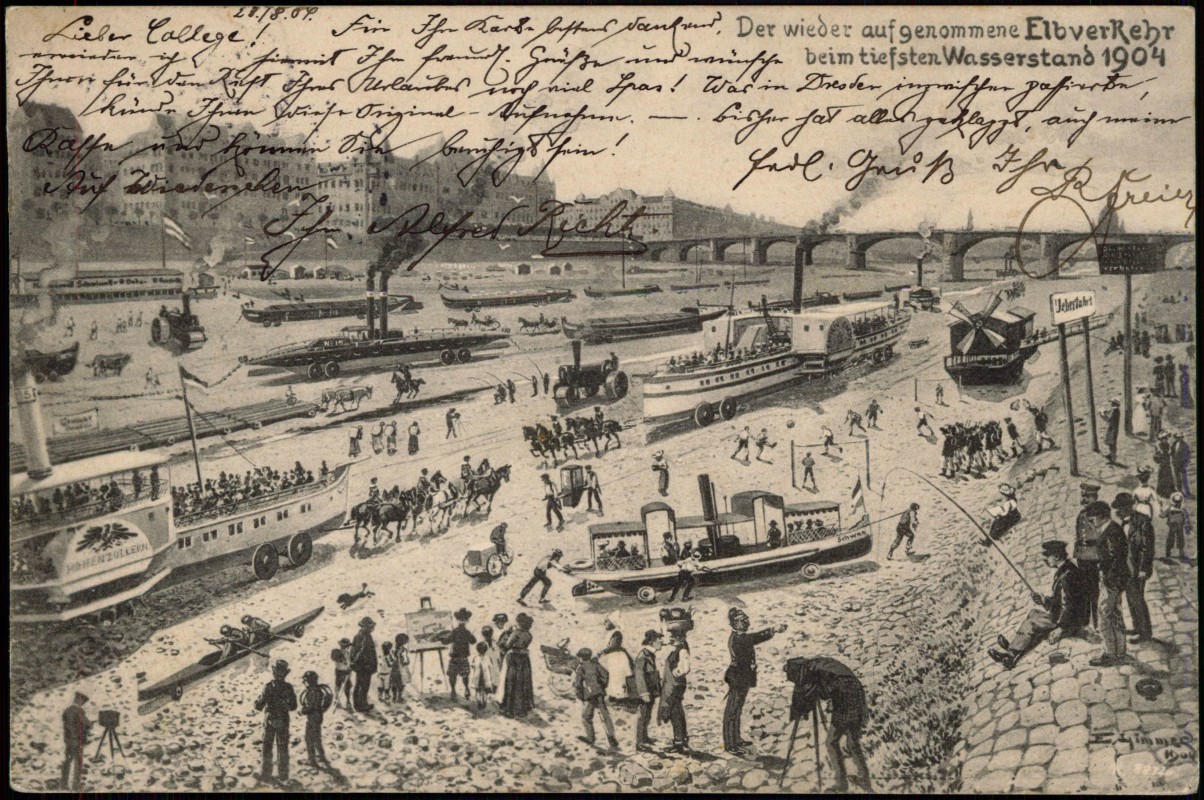 28/8.04.
Lieber College! Für Ihre Karte bestens dankend,
erwieder ich hiermit Ihre freundl. Grüße und wünsche
Ihnen für den Rest Ihres Urlaubes noch viel Spas! Was in Dresden inzwischen passierte,
künde Ihnen diese Original-Aufnahme. —. Bisher hat alles geklappt, auch meine
Kasse und können Sie beruhigt sein!
Auf Wiedersehen
Ihr Alfred Richter
frdl. Gruß Ihr
Der wieder aufgenommene Elbverkehr
beim tiefsten Wasserstand 1904
Ueberfahrt
HOHENZOLLERN
Schwan